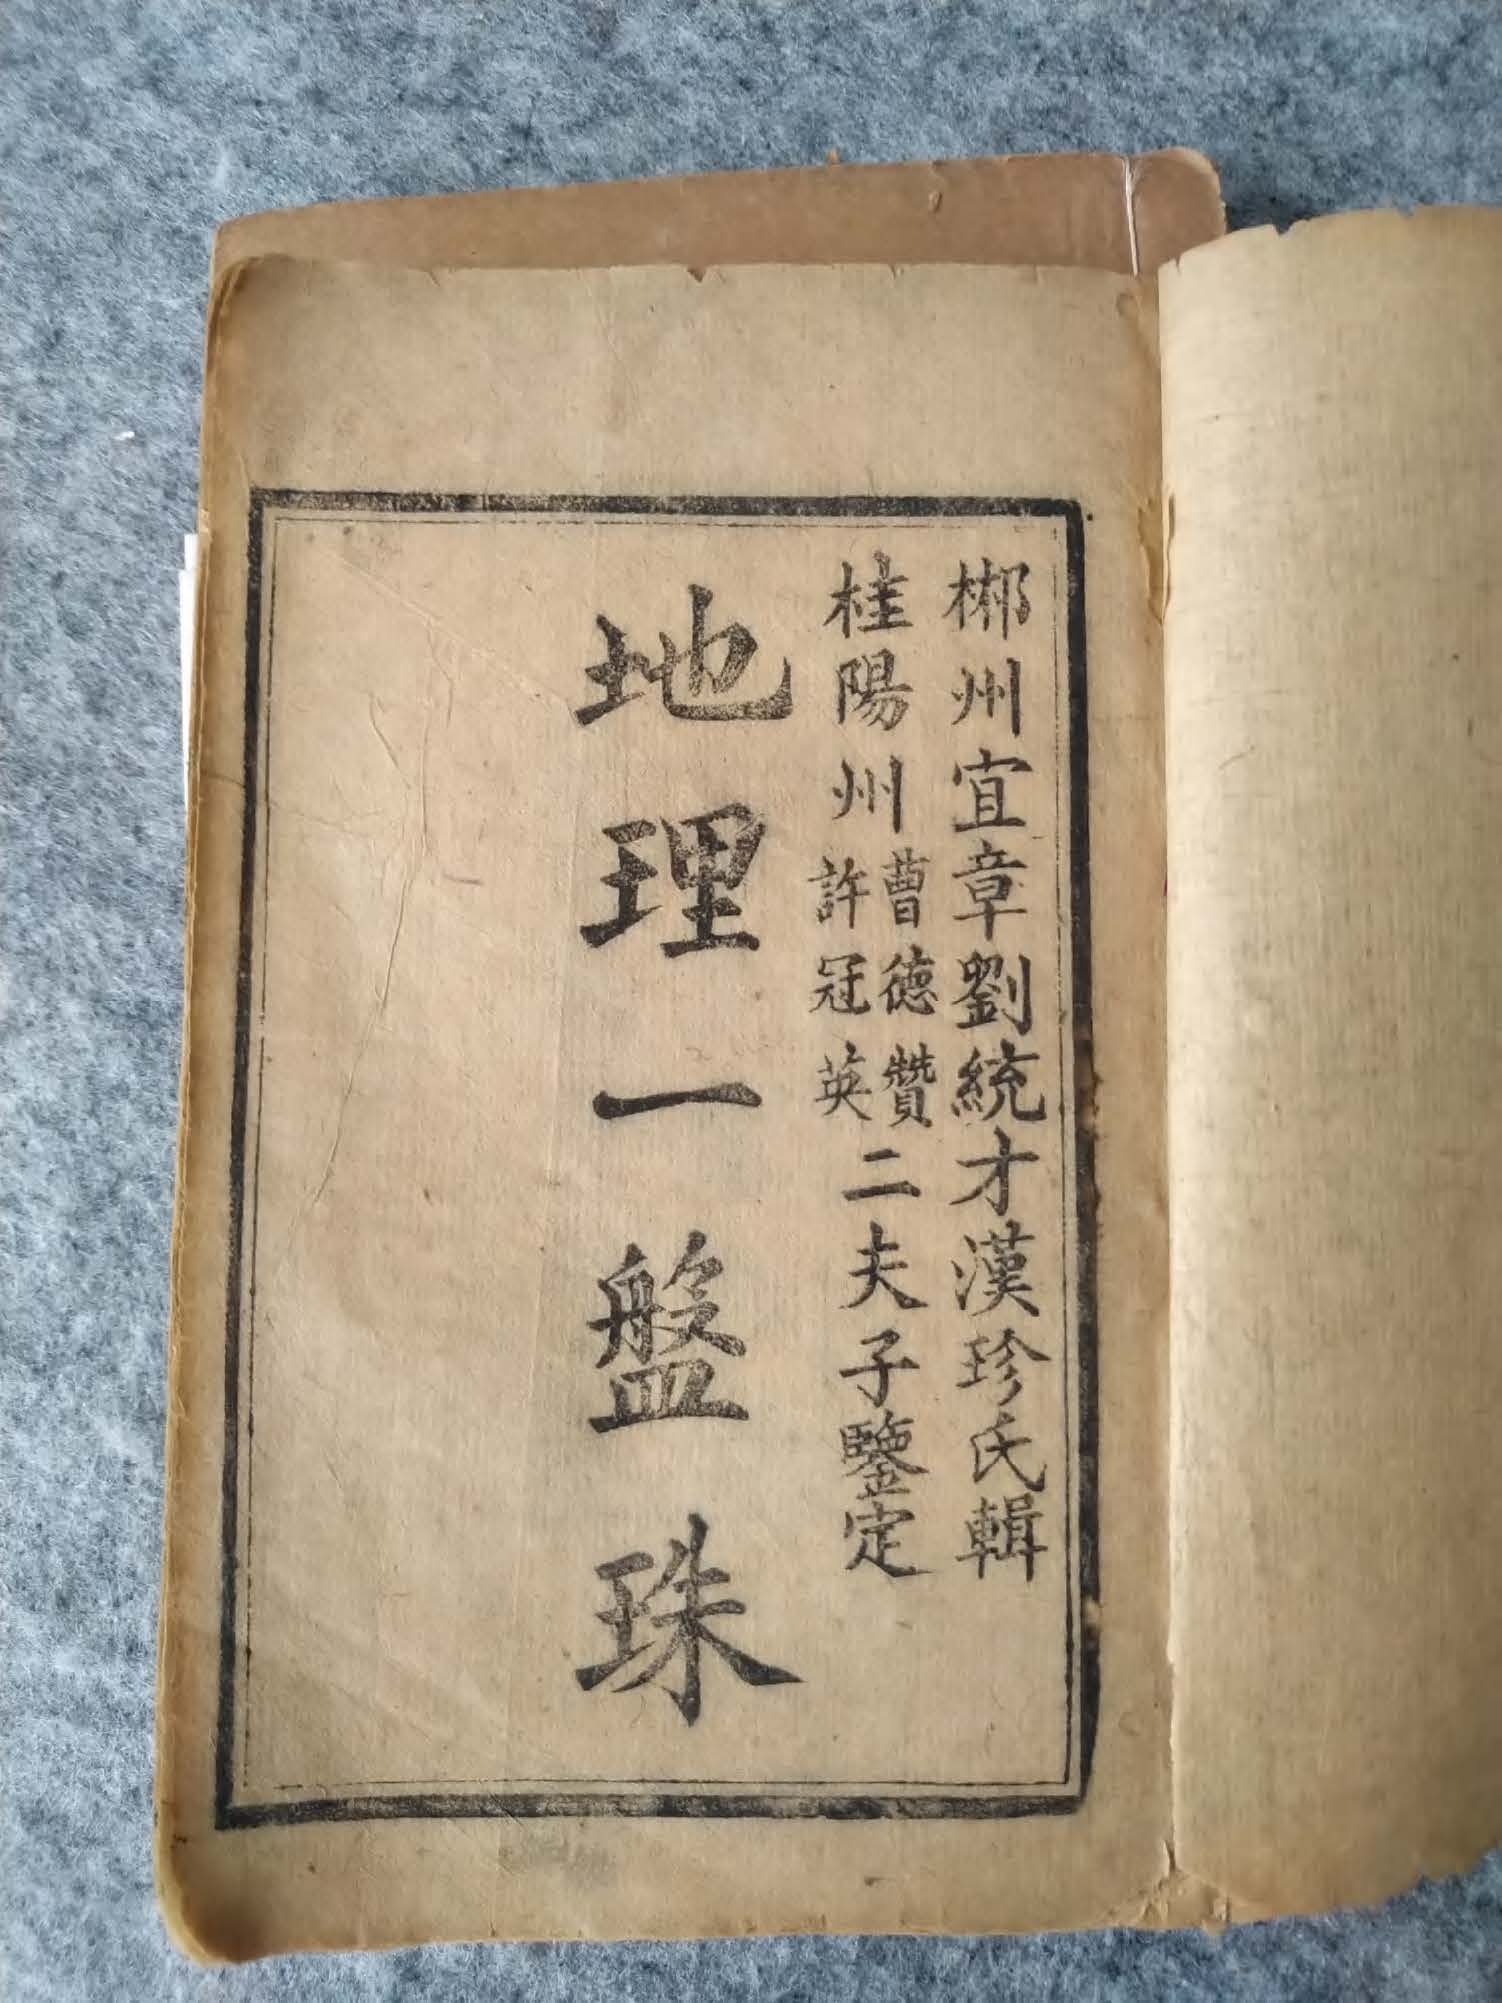 郴州宜章劉統才漢珍氏輯
桂陽州曹德贊許冠英二夫子鑒定
地理一盤珠